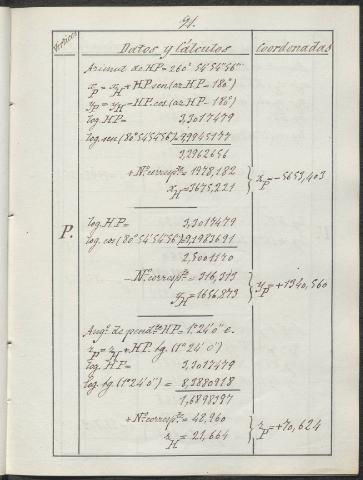 91.
Vértices
Datos y Cálculos
Coordenadas
Azimut de HP = 260° 54' 54" 56'''
x_P = x_H + HP. sen (az. HP - 180°)
y_P = y_H - HP. cos (az. HP - 180°)
log. HP = 3,3017479
log. sen (80° 54' 54" 56''') = 9,9945177
3,2962656
+ N.º corresp.te = 1978,182
x_H = 3675,221
x_P = - 5653,403
P.
log. HP = 3,3017479
log. cos (80° 54' 54" 56''') = 9,1983691
2,5001170
- N.º corresp.te = 316,313
y_H = 1656,873
y_P = + 1340,560
Ang.º de pend.te HP = 1° 24' 0" e.
z_P = z_H + HP. tg. (1° 24' 0")
log. HP = 3,3017479
log. tg (1° 24' 0") = 8,3880918
1,6898397
+ N.º corresp.te = 48,960
z_H = 21,664
z_P = + 70,624